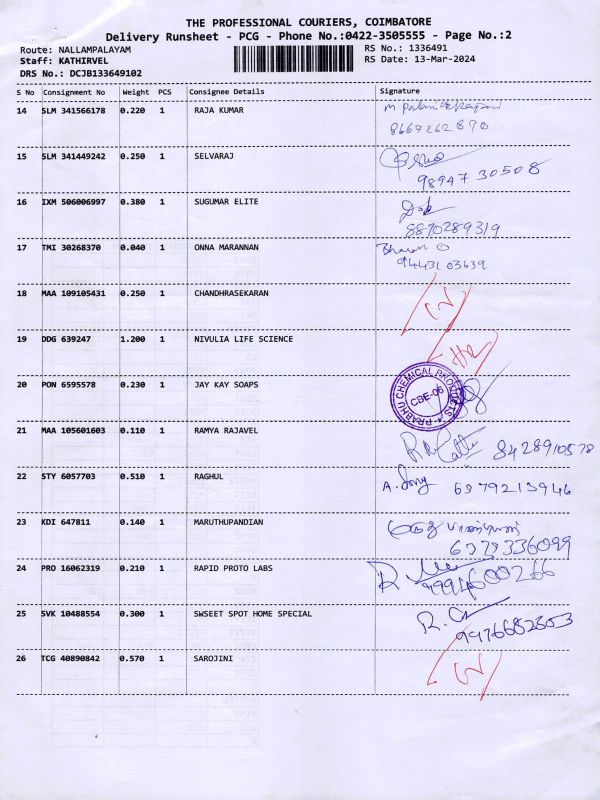 THE PROFESSIONAL COURIERS, COIMBATORE
Delivery Runsheet - PCG - Phone No.:0422-3505555 - Page No.:2
Route: NALLAMPALAYAM RS No.: 1336491
Staff: KATHIRVEL RS Date: 13-Mar-2024
DRS No.: DCJB133649102
S No Consignment No Weight PCS Consignee Details Signature
14 SLM 341566178 0.220 1 RAJA KUMAR
8667262890
15 SLM 341449242 0.250 1 SELVARAJ
98947 30508
16 IXM 506006997 0.380 1 SUGUMAR ELITE
8870289319
17 TMI 30268370 0.040 1 ONNA MARANNAN
9443103639
18 MAA 109105431 0.250 1 CHANDHRASEKARAN
19 DDG 639247 1.200 1 NIVULIA LIFE SCIENCE
20 PON 6595578 0.230 1 JAY KAY SOAPS PRABHU CHEMICAL PRODUCTS CBE-06
21 MAA 105601603 0.110 1 RAMYA RAJAVEL
8428910578
22 STY 6057703 0.510 1 RAGHUL
6379213946
23 KDI 647811 0.140 1 MARUTHUPANDIAN
24 PRO 16062319 0.210 1 RAPID PROTO LABS
25 SVK 10488554 0.300 1 SWSEET SPOT HOME SPECIAL
26 TCG 40890842 0.570 1 SAROJINI